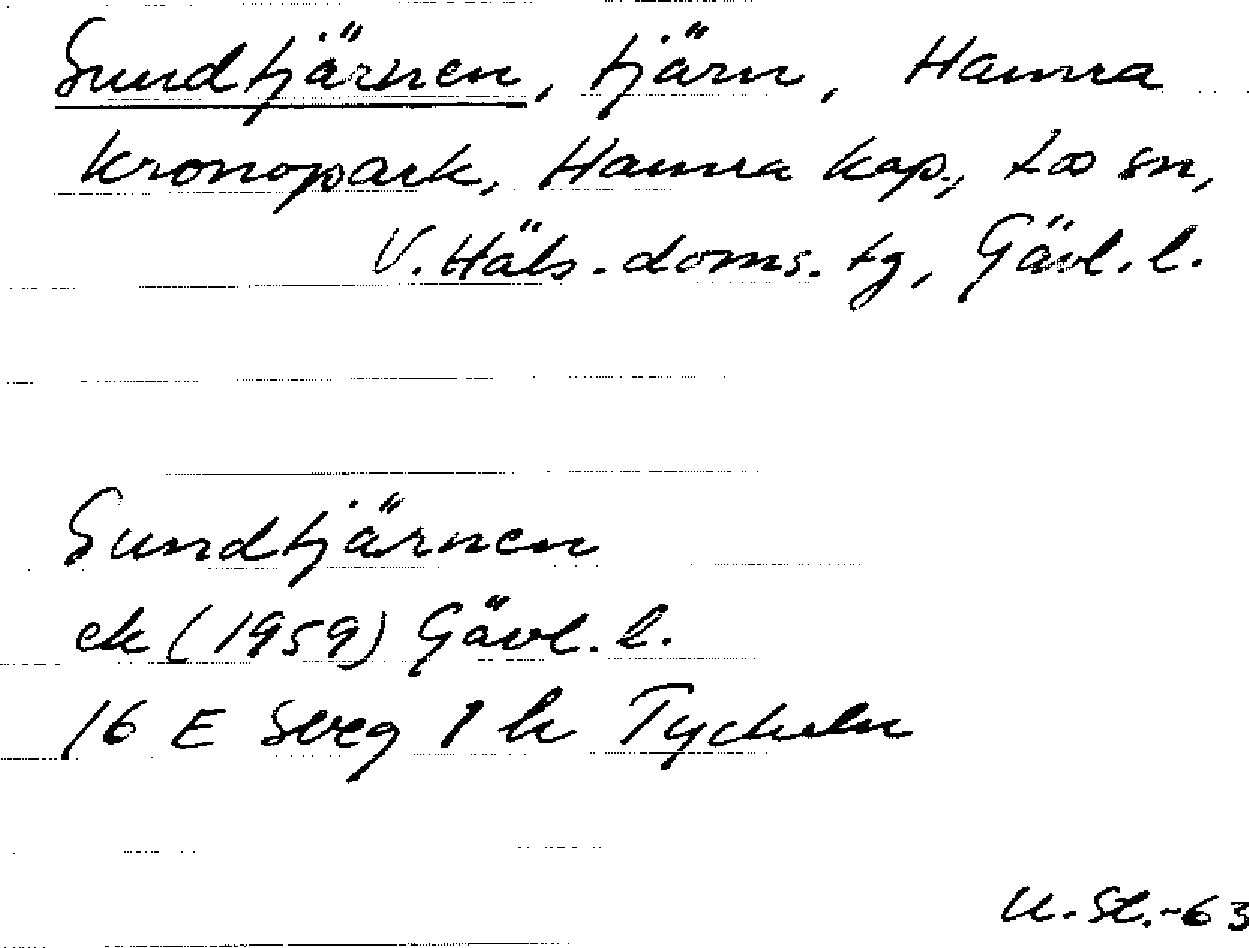 Sundtjärnen, tjärn, Hamra
kronopark, Hamra kap., Los sn,
V. Häls. doms. tg, Gävl. l.
Sundtjärnen
ek (1959) Gävl. l.
16 E Sveg 1 h Tyckeln
U. Sl.-63